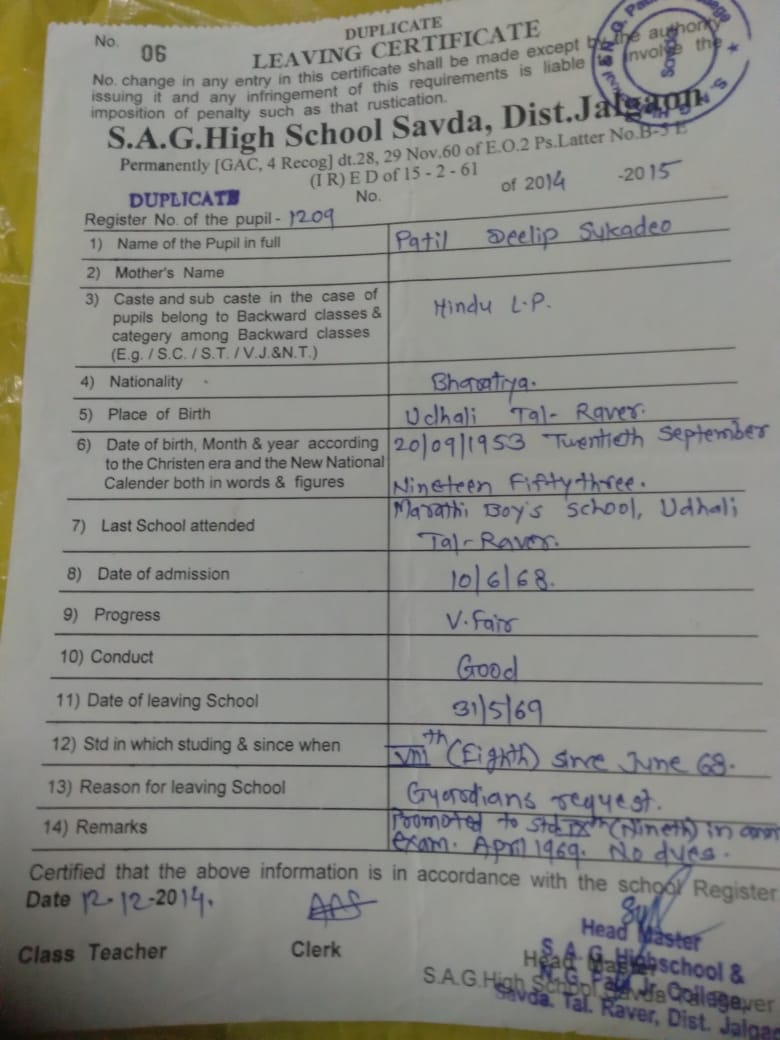 DUPLICATE
No. 06
LEAVING CERTIFICATE
No. change in any entry in this certificate shall be made except by the authority
issuing it and any infringement of this requirements is liable involve the
imposition of penalty such as that rustication.
S.A.G.High School Savda, Dist.Jalgaon
Permanently [GAC, 4 Recog] dt.28, 29 Nov.60 of E.O.2 Ps.Latter No.B-5 E
(I R) E D of 15 - 2 - 61
DUPLICATE No. of 2014 -2015
Register No. of the pupil - 1209
1) Name of the Pupil in full Patil Deelip Sukadeo
2) Mother's Name
3) Caste and sub caste in the case of
pupils belong to Backward classes &
categery among Backward classes
(E.g. / S.C. / S.T. / V.J.&N.T.)
Hindu L.P.
4) Nationality Bharatiya.
5) Place of Birth Udhali Tal- Raver.
6) Date of birth, Month & year according 20/09/1953 Twentieth September
to the Christen era and the New National
Calender both in words & figures Nineteen Fiftythree.
7) Last School attended Marathi Boy's School, Udhali
Tal- Raver.
8) Date of admission 10/6/68.
9) Progress V.Fair
10) Conduct Good
11) Date of leaving School 31/5/69
12) Std in which studing & since when VIIIth (Eighth) since June 68.
13) Reason for leaving School Guardians request.
14) Remarks Promoted to Std IXth (Nineth) in
exam. April 1969. No dues.
Certified that the above information is in accordance with the school Register
Date 12-12-2014.
Class Teacher Clerk
Head Master
S. A. G. Highschool &
Head Master
N. G. Patil Jr. College,
S.A.G.High School Savda Tal Raver
Savda. Tal. Raver, Dist. Jalgao